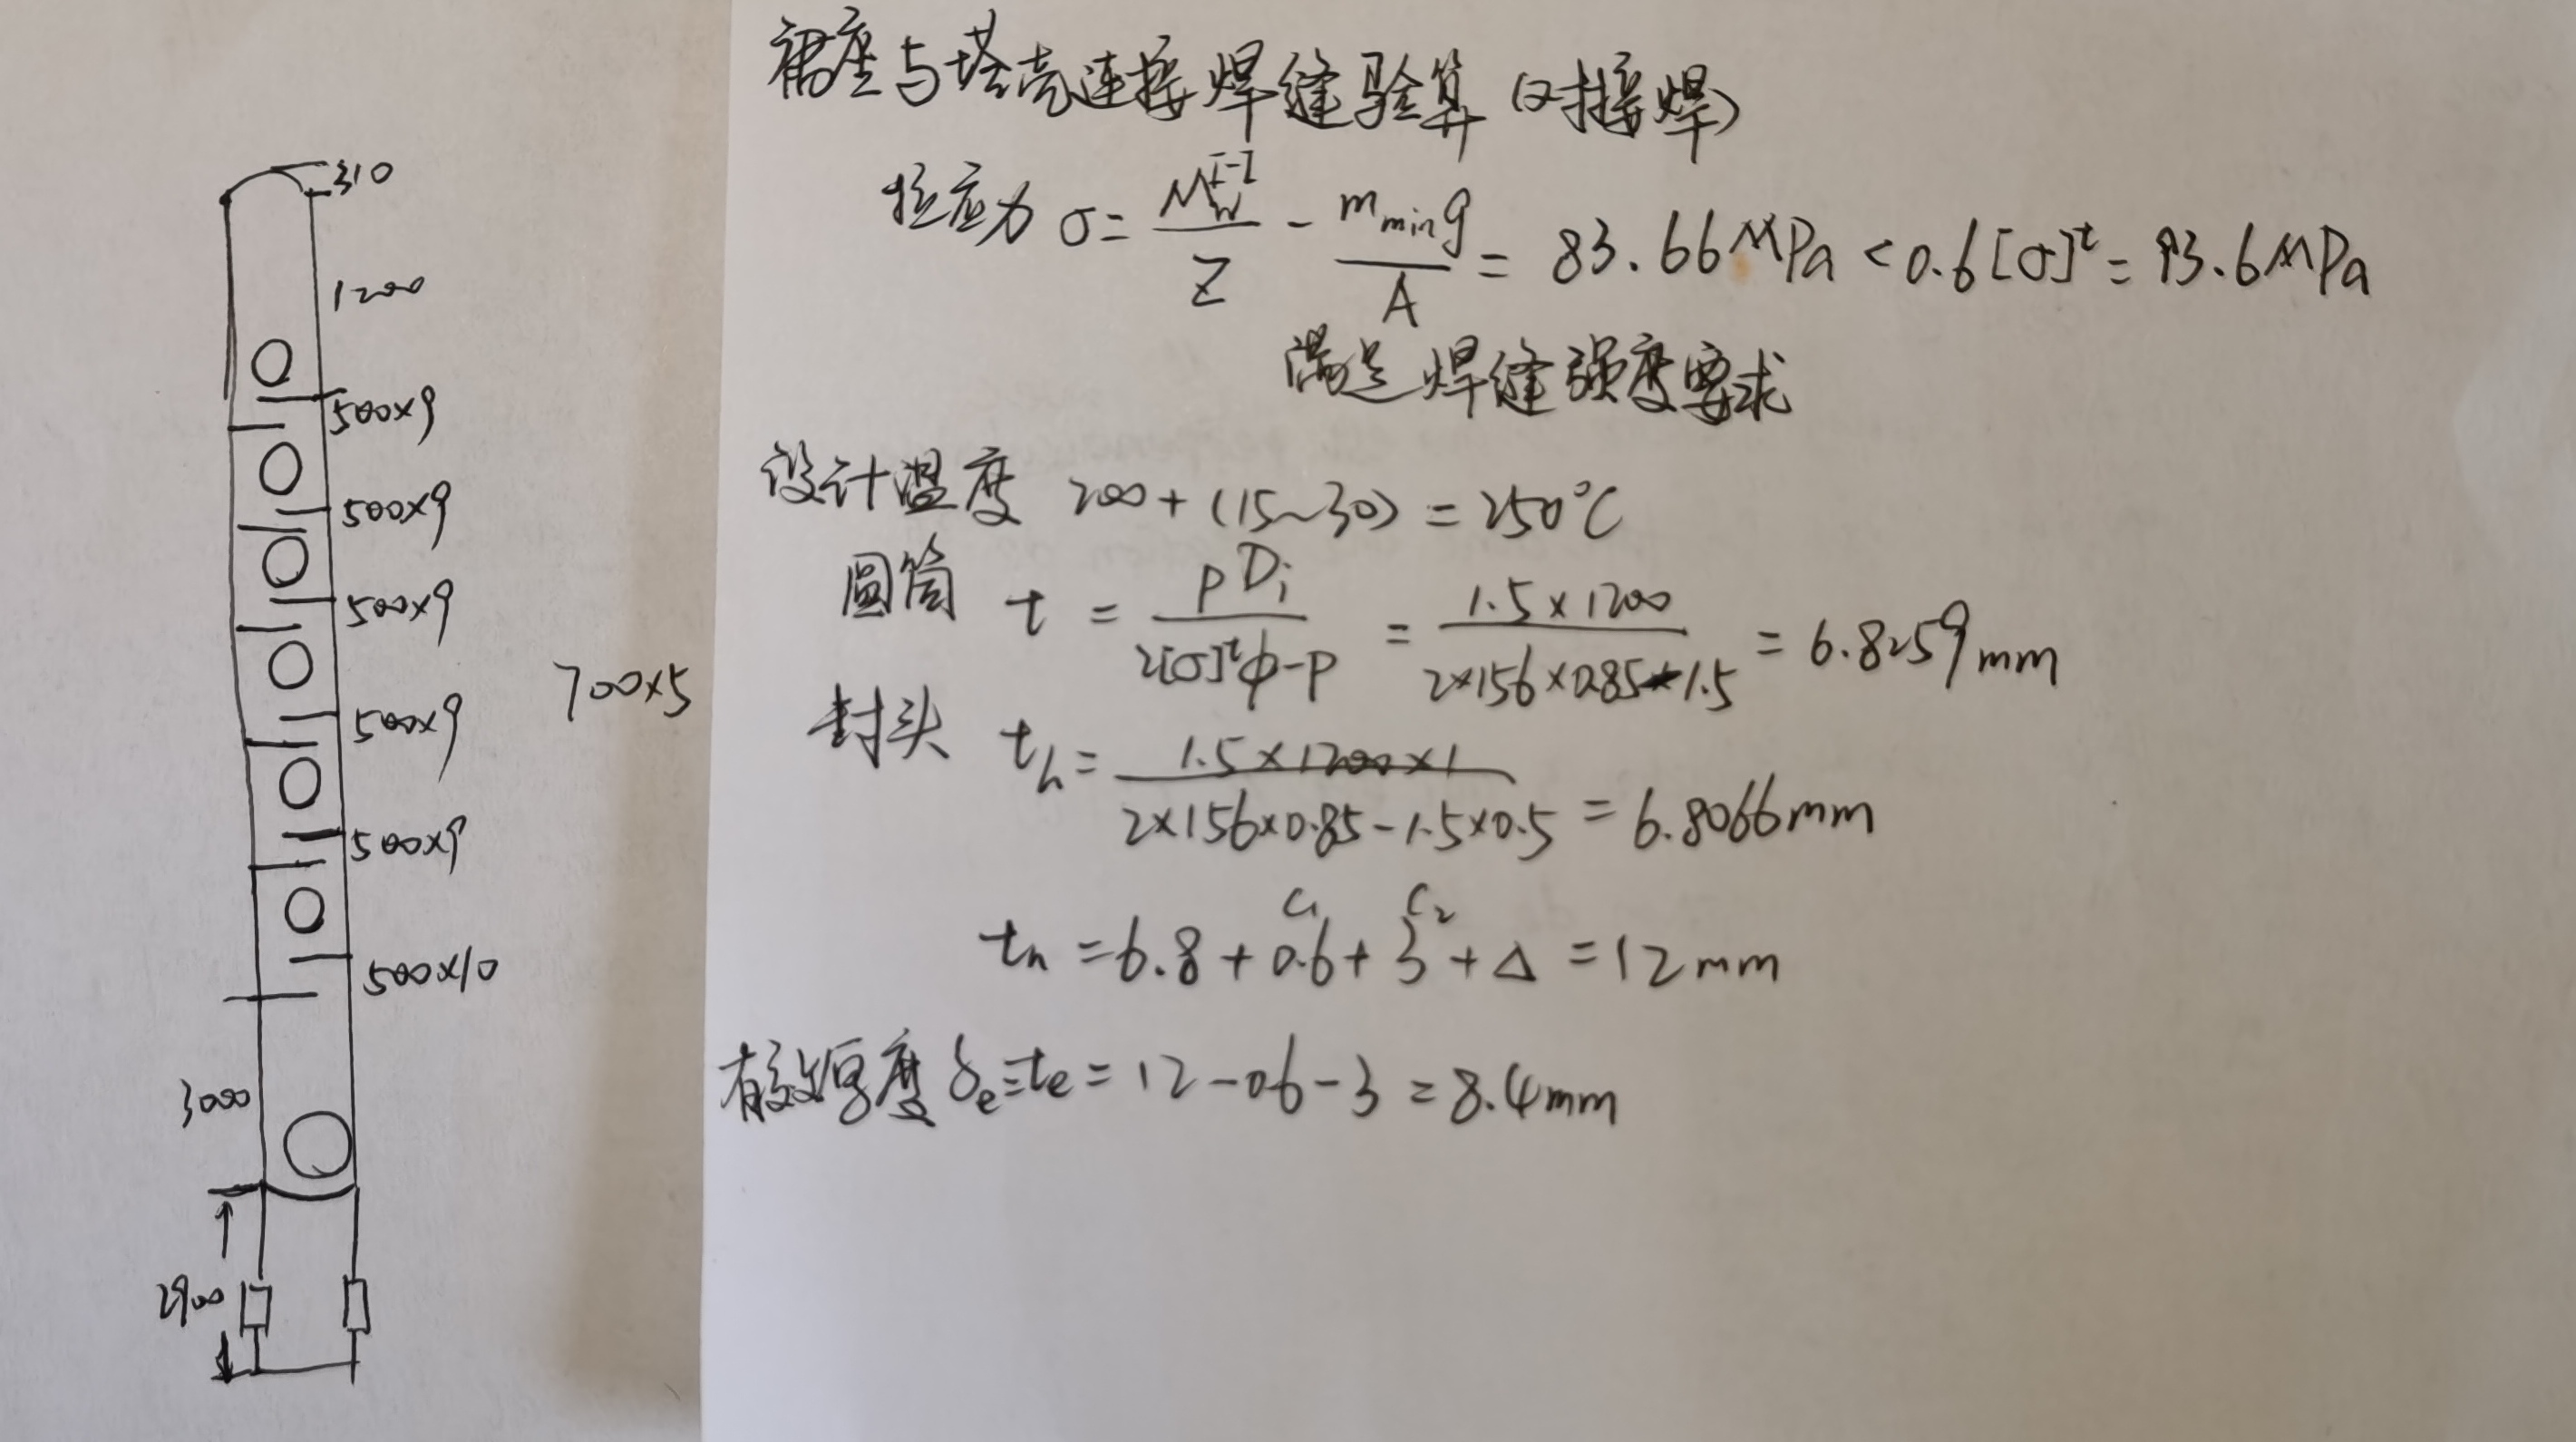 310
1200
500×9
500×9
500×9
500×9
500×9
500×10
3000
2900
700×5
裙座与塔壳连接焊缝验算(对接焊)
拉应力 σ = M_w^{I-I}/Z - m_min g/A = 83.66MPa < 0.6[σ]^t = 93.6MPa
满足焊缝强度要求
设计温度 200+(15~30) = 250°C
圆筒 t = pDi/2[σ]^tφ-p = 1.5×1200/2×156×0.85-1.5 = 6.8259mm
封头 t_h = 1.5×1200×1/2×156×0.85-1.5×0.5 = 6.8066mm
C1 C2
t_n = 6.8+0.6+3+Δ = 12mm
有效厚度 δe=te = 12-0.6-3 = 8.4mm